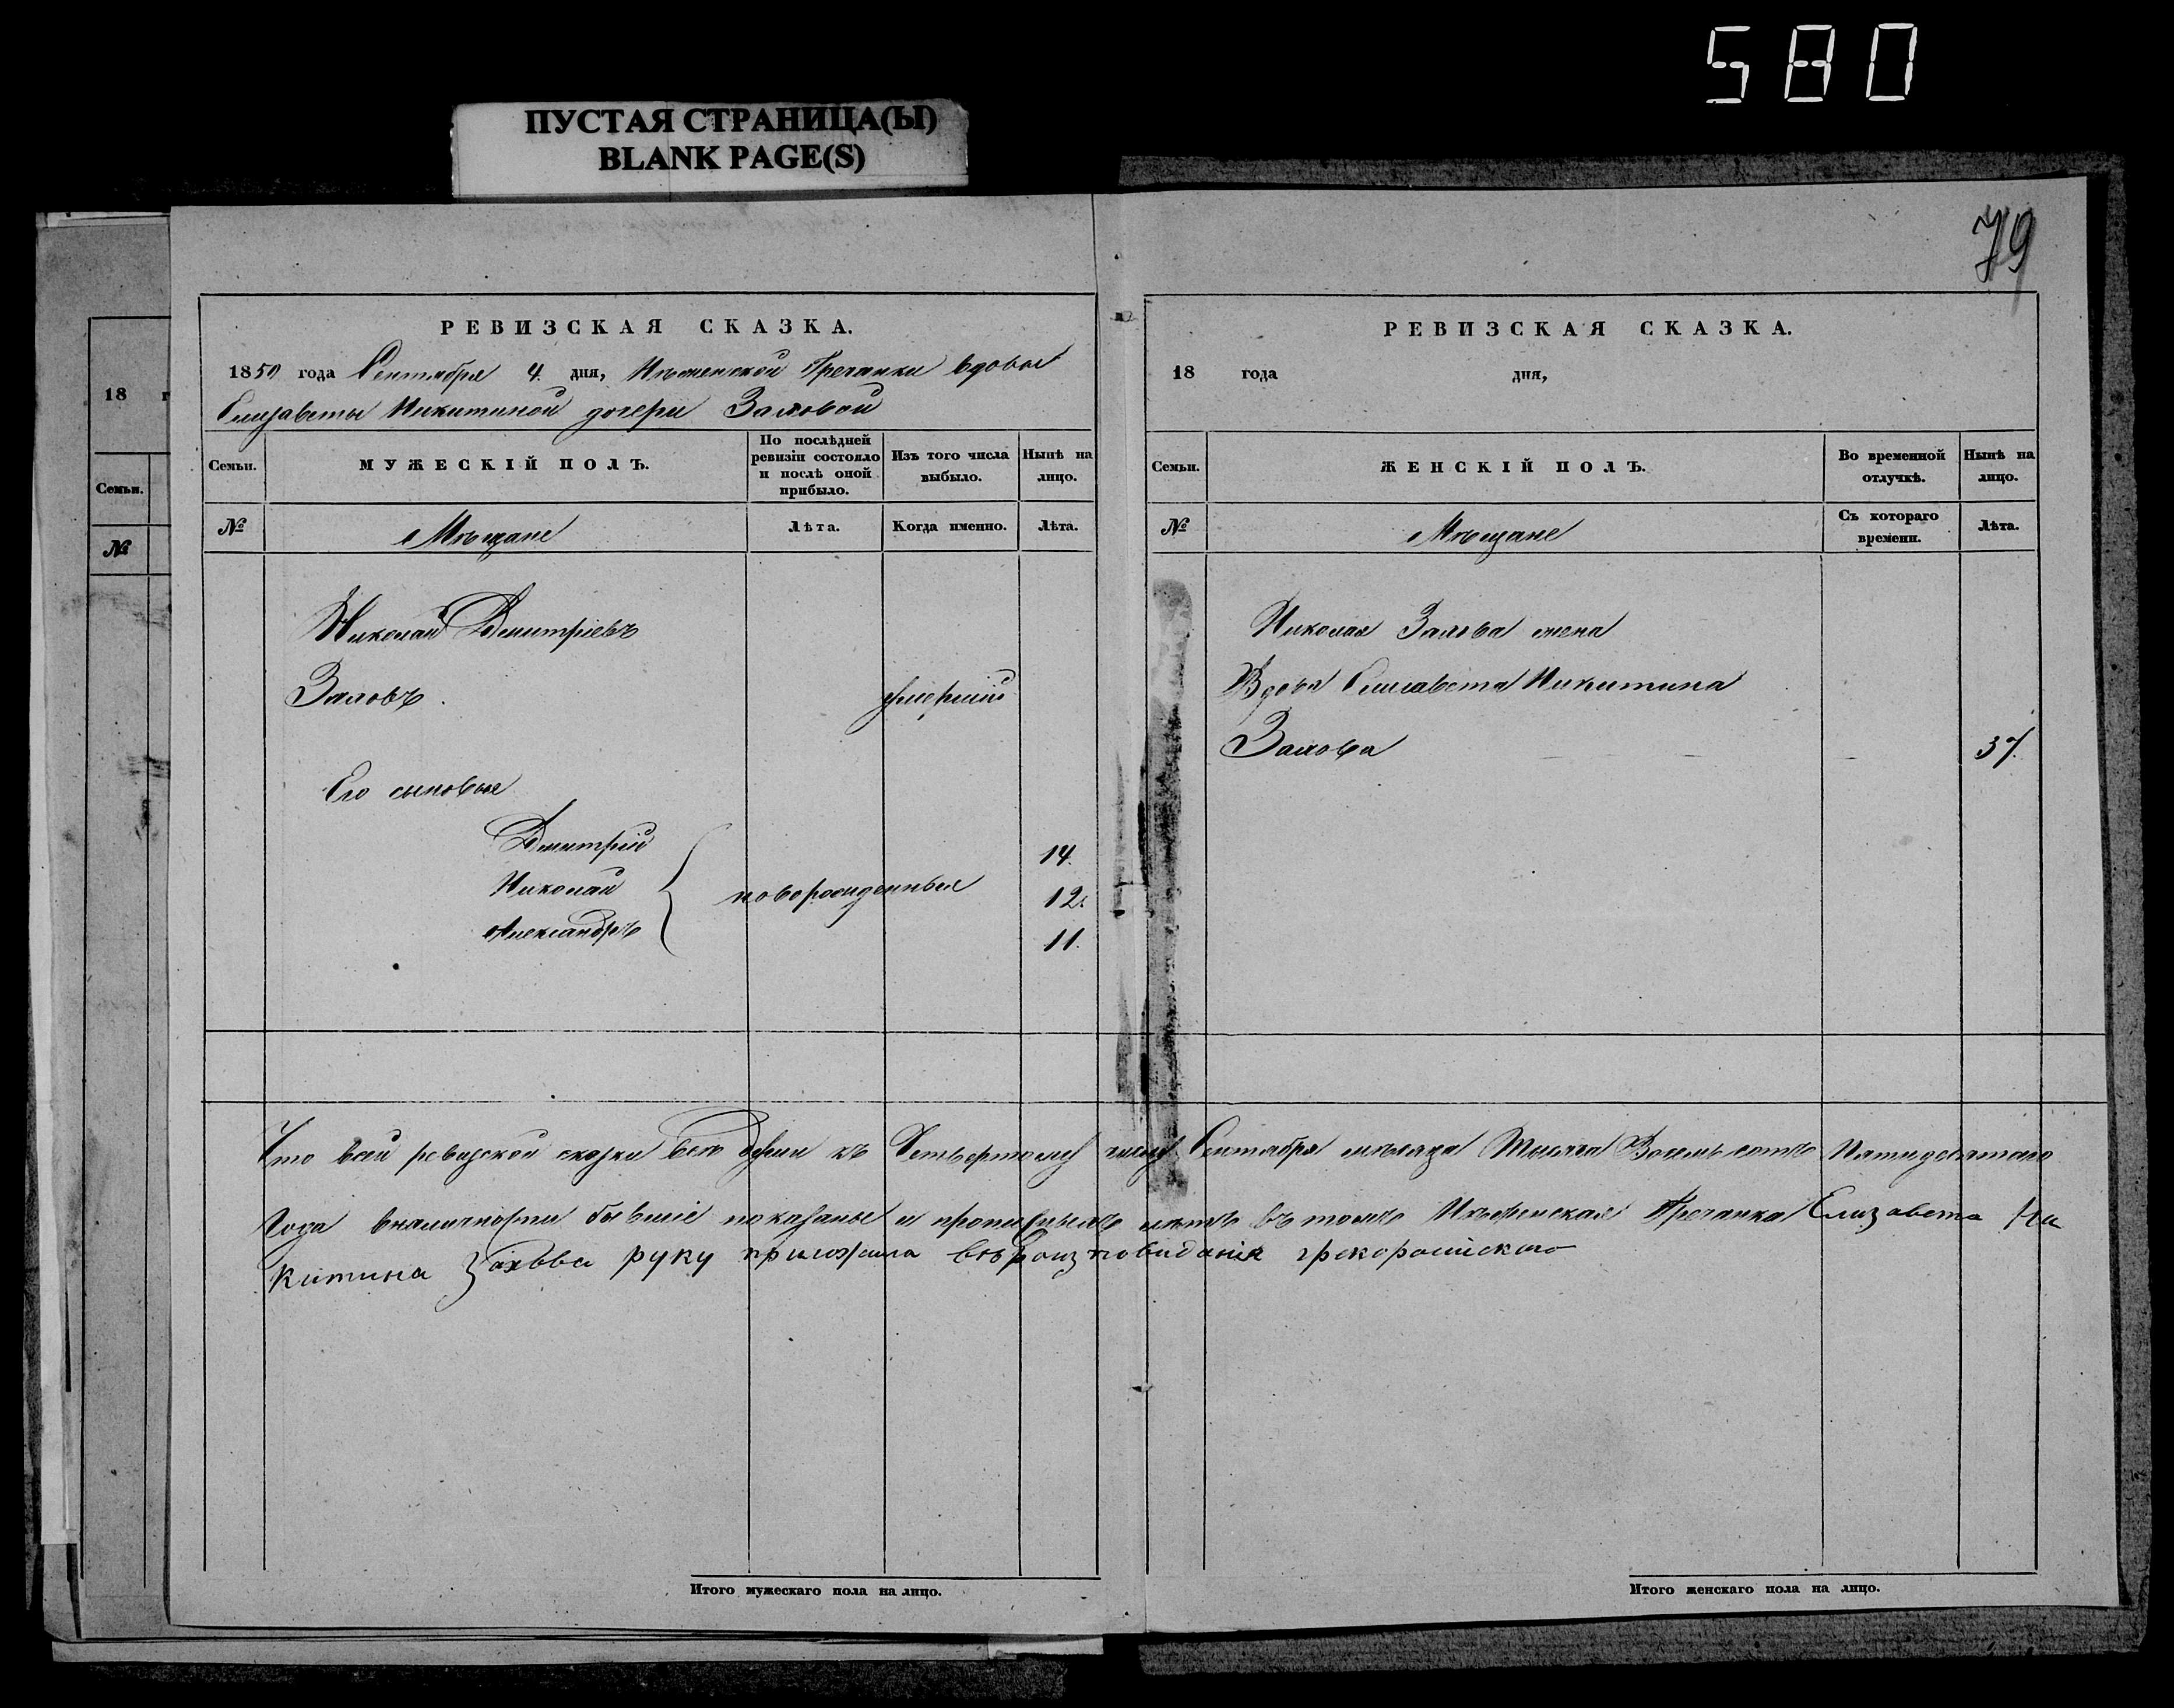 580
ПУСТАЯ СТРАНИЦА(Ы)
BLANK PAGE(S)
79
18 г
Семьи.
№
РЕВИЗСКАЯ СКАЗКА.
1850 года Сентября 4. дня, Нѣженской Гречанки вдовы
Елизаветы Никитиной дочери Заловой
Семьи.
МУЖЕСКІЙ ПОЛЪ.
По послѣдней ревизіи состояло и послѣ оной прибыло.
Изъ того числа выбыло.
Нынѣ на лицо.
№
Мѣщане
Лѣта.
Когда именно.
Лѣта.
Николай Дмитріевъ
Заловъ. умерший
Его сыновья
Дмитрій 14.
Николай новорожденные 12.
Александръ 11.
Итого мужескаго пола на лицо.
РЕВИЗСКАЯ СКАЗКА.
18 года дня,
Семьи.
ЖЕНСКІЙ ПОЛЪ.
Во временной отлучкѣ.
Нынѣ на лицо.
№
Мѣщане
Съ котораго времени.
Лѣта.
Николая Залова жена
Вдова Елисавета Никитина
Залова 37.
Что всей ревизской сказки всѣ души къ Четвертому числу Сентября мѣсяца Тысяча Восемь сотъ Пятидесятаго
Года вналичности бывшіе показаны и прописныхъ нѣтъ въ томъ Нѣженская Гречанка Елизавета Ни
китина руку приложила грекоросийскаго
Итого женскаго пола на лицо.